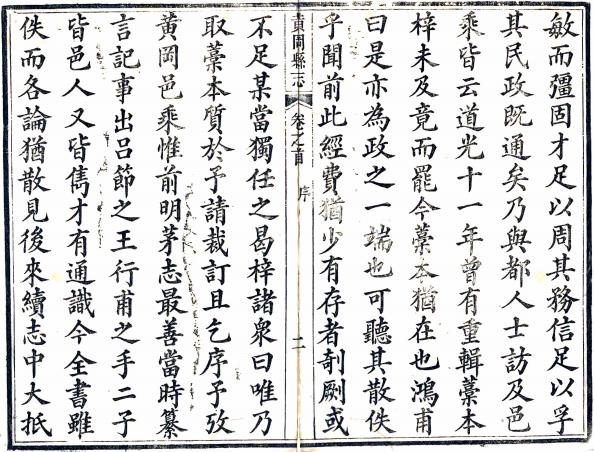 敏而彊固才足以周其務信足以孚
其民政既通矣乃與都人士訪及邑
乘皆云道光十一年曾有重輯藁本
梓未及竟而罷今藁本猶在也鴻甫
曰是亦為政之一端也可聽其散佚
乎聞前此經費猶少有存者剞劂或
黃岡縣志 卷之首 序 二
不足某當獨任之曷梓諸衆曰唯乃
取藁本質於予請裁訂且乞序予攷
黃岡邑乘惟前明茅志最善當時纂
言記事出呂節之王行甫之手二子
皆邑人又皆雋才有通識今全書雖
佚而各論猶散見後來續志中大抵